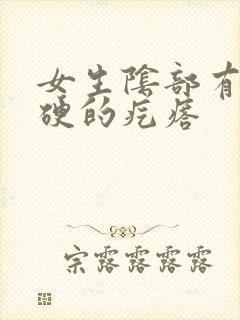 女生陰部有
硬的疙瘩
宗露露露露